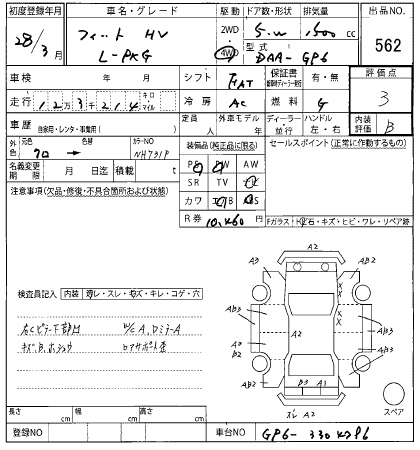 初度登録年月 車名・グレード 駆動 ドア数・形状 排気量 出品NO
28/3月 フィット HV 2WD 5.W 1500 cc
L-PKG 4WD 型式 DAA-GP6 562
車検 年 月 シフト FAT 保証書 有・無 評価点
走行 12万3千214 キロ マイル 冷房 AC 燃料 G 3
車歴 自家用・レンタ・事業用( ) 定員 人 外車モデル 年 ディーラー 並行 ハンドル 左・右 内装評価 B
外色 元色 クロ → 色替 カラーNO NH731P 装備品(純正品に限る) セールスポイント(正常に作動するもの)
名義変更期限 月 日迄 積載 t PS PW AW
注意事項(欠品・修復・不具合箇所および状態) SR TV
カワ
R券 10,460 円 Fガラス:トビ石・キズ・ヒビ・ワレ・リペア跡
A2
A3 AB2
検査員記入 内装 汚レ・スレ・キズ・キレ・コゲ・穴
AB3 X X X AB3
右Cピラー W/C A,DミラーA
キズB. A2
A0 B2 AB3
B3 A1
AB2
スペア
スレ A2
長さ cm 幅 cm 高さ cm
登録NO 車台NO GP6-330